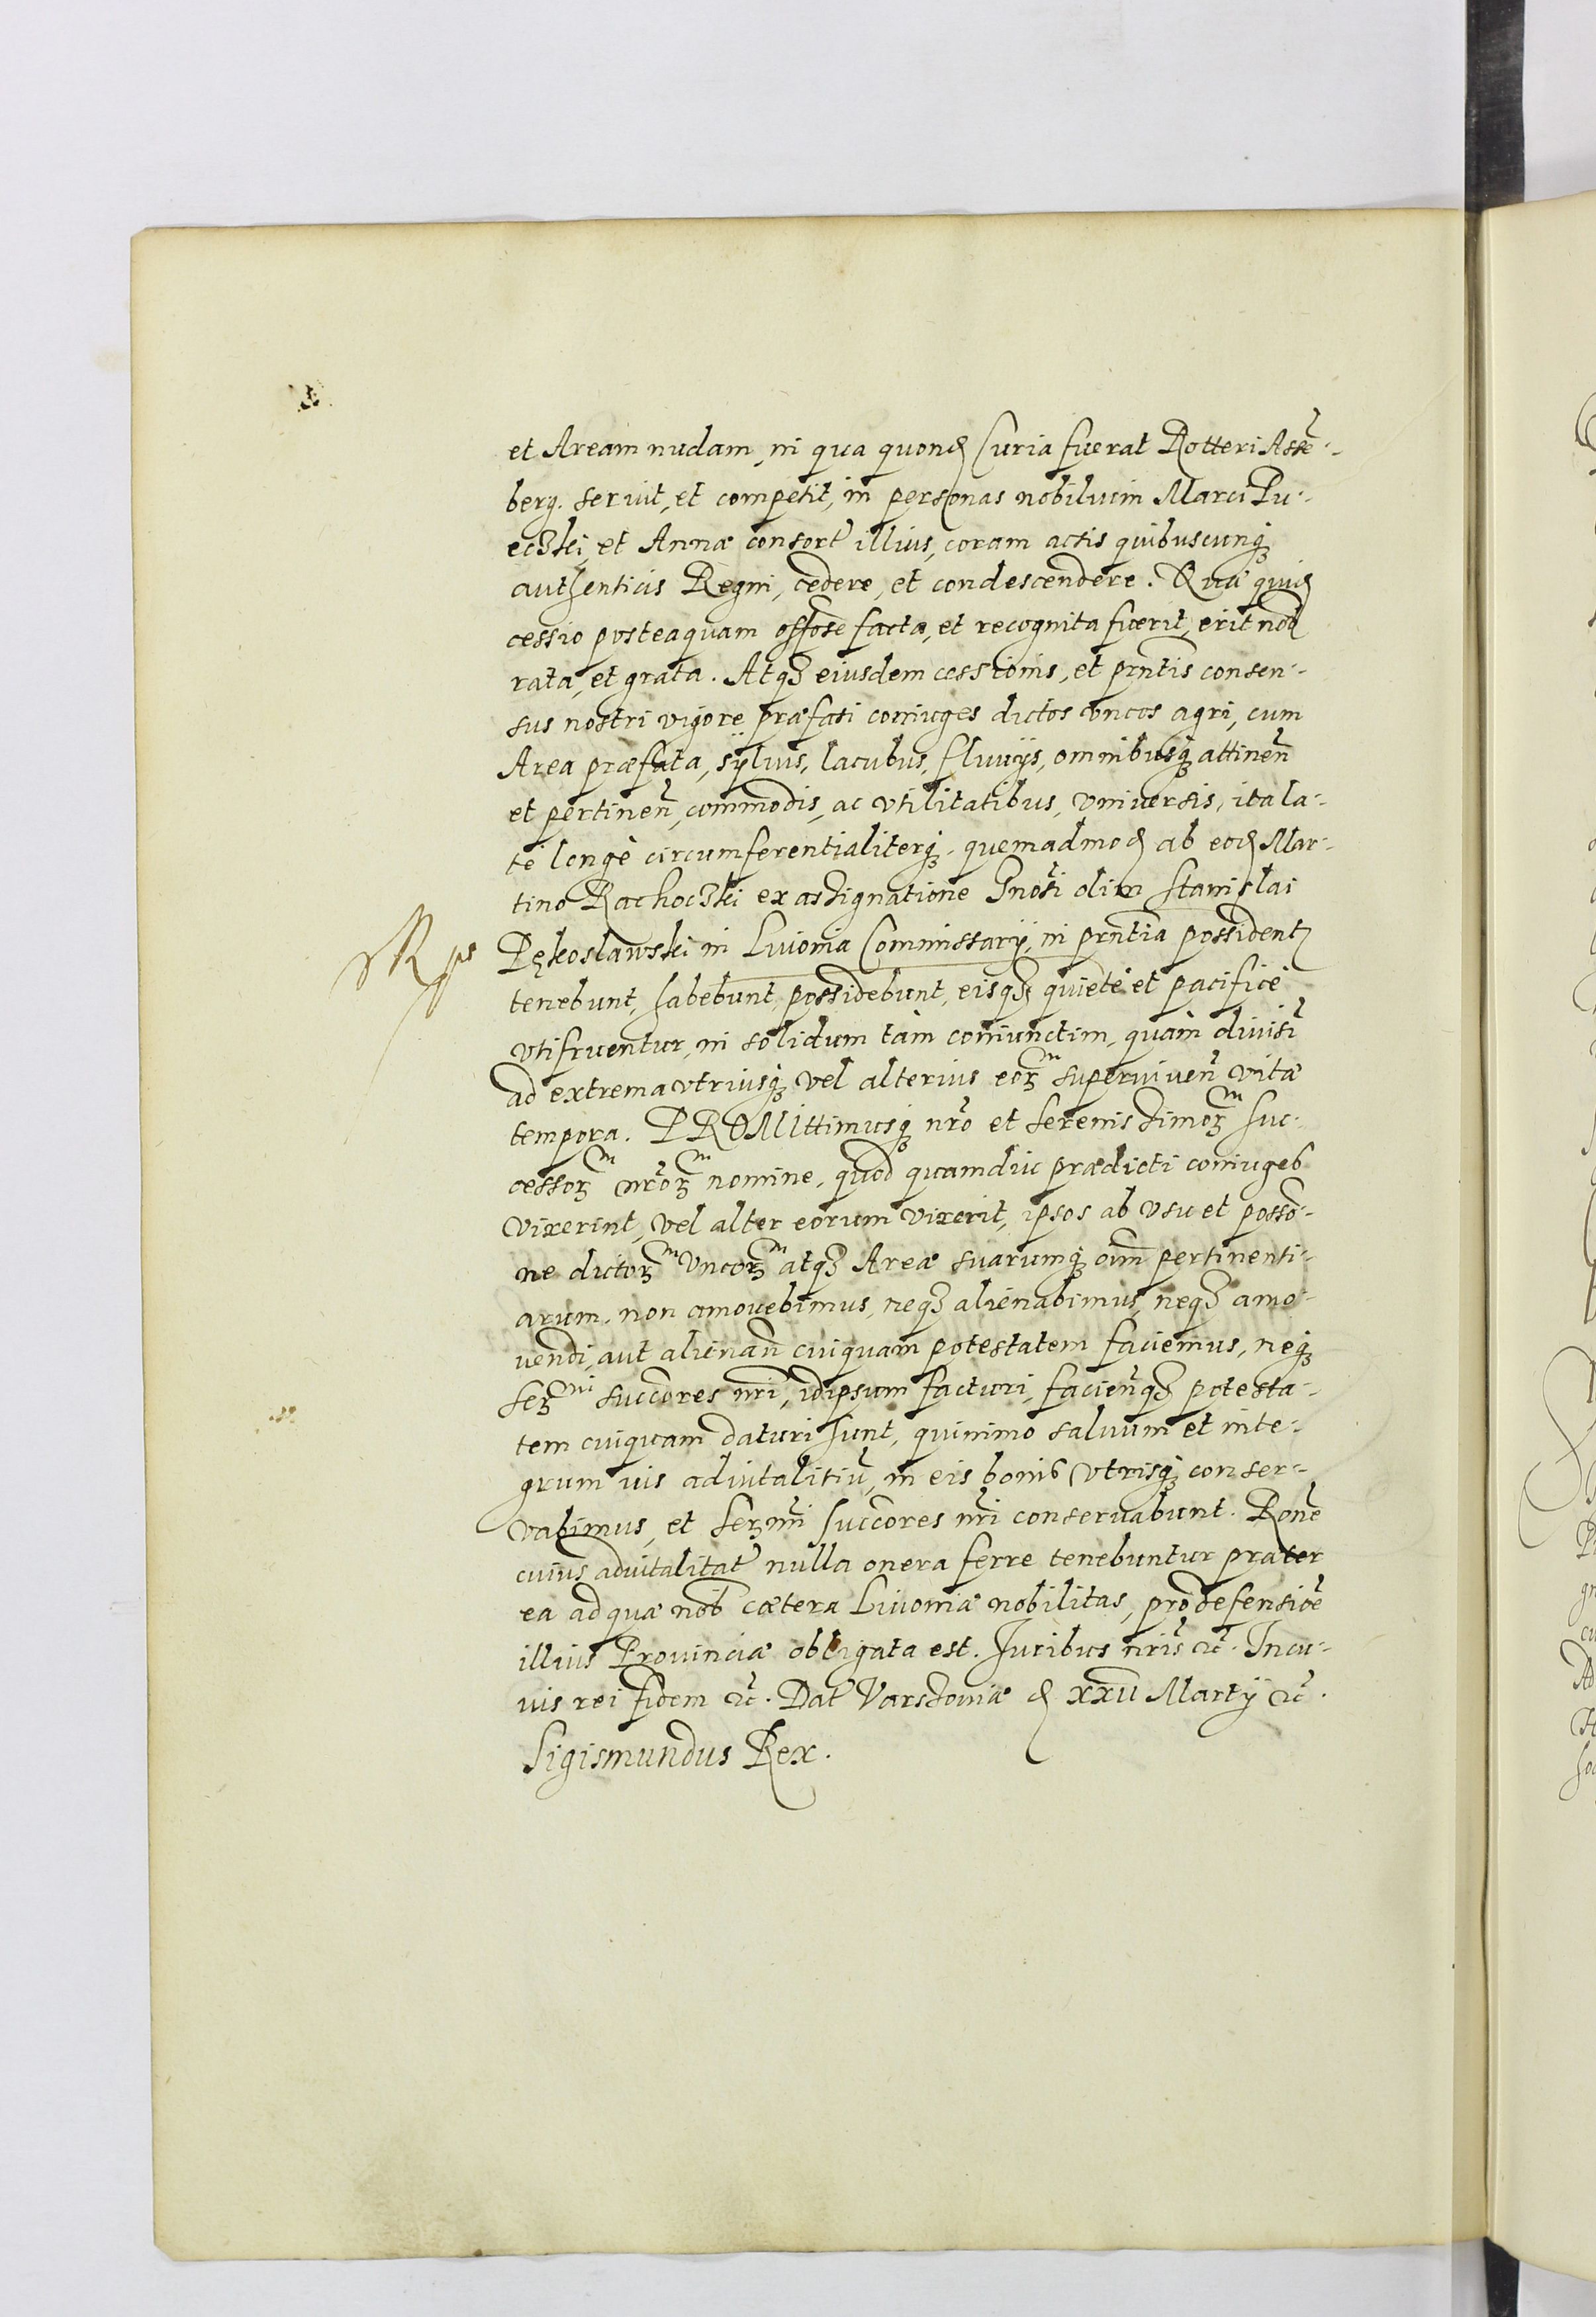 et Aream nudam, in qua quond Curia fuerat Rotteri Assē-
berg. seruit, et competit, in personas nobilium Marci Pu-
eczki, et Annæ consort illius, coram actis quibuscunq
authenticis Regni, cedere, et condescendere. Quæ quid
cessio posteaquam offōse facta, et recognita fuerit, erit nob
rata, et grata. Atqз eiusdem cessionis, et prntis consen-
sus nostri vigore præfati coniuges dictos vncos agri, cum
Area præfata, syluis, lacubus, fluuijs, omnibusq attinen̄
et pertinen̄, commodis, ac vtilitatibus, vniuersis, ita la-
tè longè circumferentialiterq, quemadmod ab eod Mar-
tino Rachoczki ex assignatione Gnosi olim Stanislai
Pękoslawski in Liuonia Commissarij, in prntia possident
tenebunt, habebunt, possidebunt, eisqз quietè et pacificè
vtifruentur, in solidum tàm coniunctim, quàm diuisī
ad extrema vtriusq vel alterius eorз^m superuiuen̄ vitæ
tempora. PROMIttimusq nrō et serenissimorз^m suc-
cessorз^m nrōrз^m nomine, quod quamdiu prædicti coniuges
vixerint, vel alter eorum vixerit, ipsos ab vsu et possō-
ne dictorз^m Vncorз^m atqз Areæ suarumq oīm pertinenti-
arum, non amouebimus, neqз alienabimus, neqз amo-
uendi, aut alienan̄ cuiquam potestatem faciemus, neq
serз^mi succōres nrī, idipsum facturi, facien̄qз potesta-
tem cuiquam daturi sunt, quinimo saluum et inte-
grum ius aduitalitiū, in eis bonis vtrisq conser-
vabimus, et serзmi succōres nrī conseruabunt. Ronē
cuius aduitalitat nulla onera ferre tenebuntur præter
ea ad quæ nob cætera Liuoniæ nobilitas, pro defensiōe
illius Prouinciæ obligata est. Juribus nrīs &c. Incu-
uis rei fidem &c. Dat Varssouiæ d xxvii Martij &c.
Sigismundus Rex.